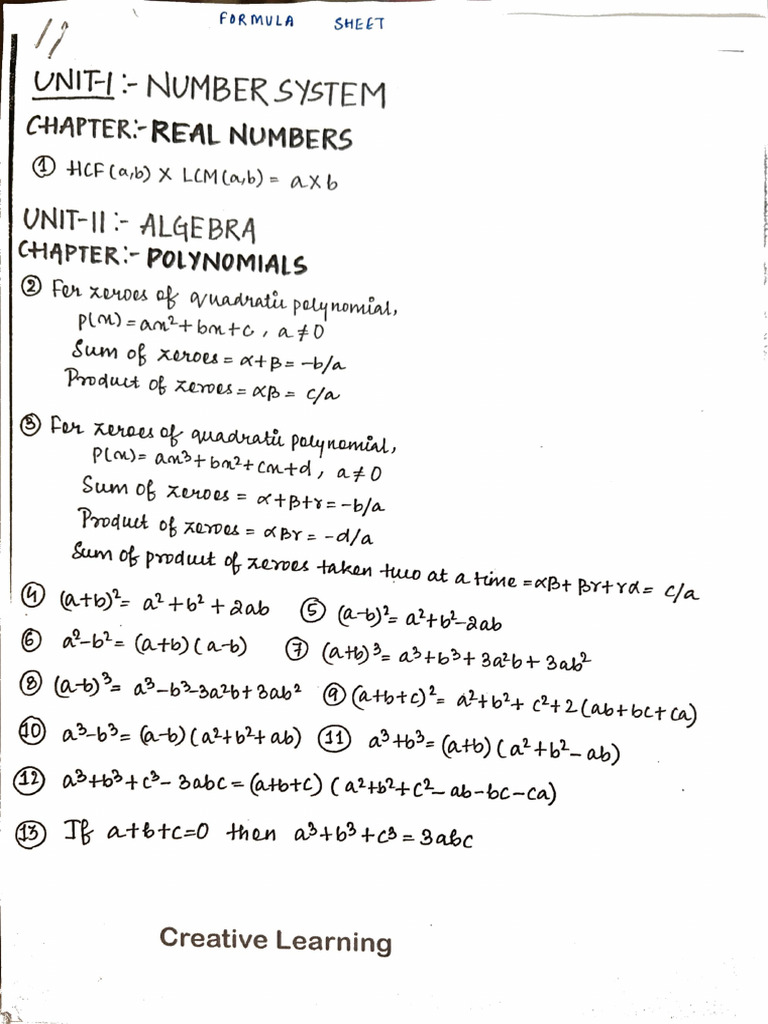 FORMULA SHEET
UNIT-I :- NUMBER SYSTEM
CHAPTER:- REAL NUMBERS
① HCF(a,b) × LCM(a,b) = a×b
UNIT-II :- ALGEBRA
CHAPTER:- POLYNOMIALS
② For zeroes of quadratic polynomial,
p(x) = ax²+bx+c, a≠0
Sum of zeroes = α+β = -b/a
Product of zeroes = αβ = c/a
③ For zeroes of quadratic polynomial,
P(x) = ax³+bx²+cx+d, a≠0
Sum of zeroes = α+β+γ = -b/a
Product of zeroes = αβγ = -d/a
Sum of product of zeroes taken two at a time = αβ+βγ+γα = c/a
④ (a+b)² = a²+b²+2ab ⑤ (a-b)² = a²+b²-2ab
⑥ a²-b² = (a+b)(a-b) ⑦ (a+b)³ = a³+b³+3a²b+3ab²
⑧ (a-b)³ = a³-b³-3a²b+3ab² ⑨ (a+b+c)² = a²+b²+c²+2(ab+bc+ca)
⑩ a³-b³ = (a-b)(a²+b²+ab) ⑪ a³+b³ = (a+b)(a²+b²-ab)
⑫ a³+b³+c³-3abc = (a+b+c)(a²+b²+c²-ab-bc-ca)
⑬ If a+b+c=0 then a³+b³+c³ = 3abc
Creative Learning